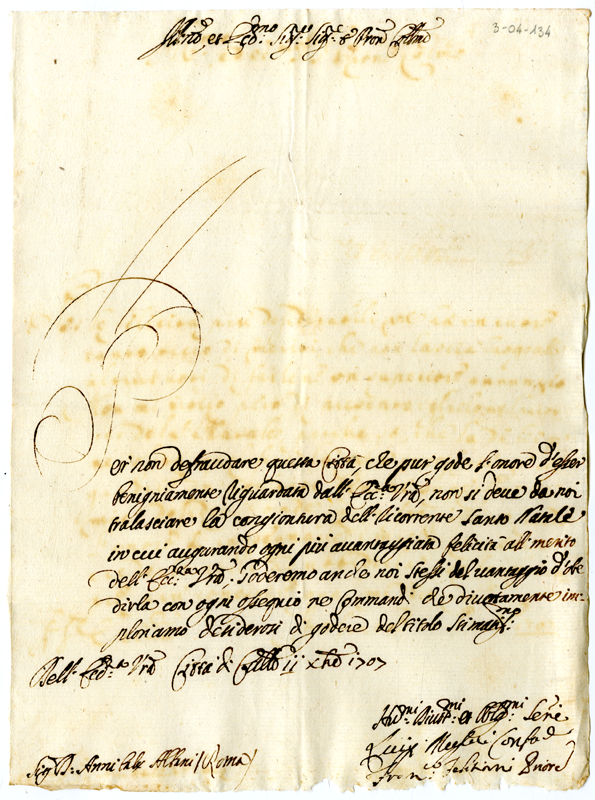 3-04-134
Illmo, et Ecc:mo Sig:re Sig:re e Pron Collmo
Per non defraudare questa Città, che pur gode l'onore d'esser
benignamente riguardata dall' Ecc:a Vra, non si deve da noi
tralasciare la congiontura dell' ricorrente Santo Natale
in cui augurando ogni più avantaggiata felicità all' merito
dell' Ecc:za Vra. Goderemo anche noi stessi del vantaggio d'obe
dirla con ogni ossequio ne Commandi che divotamente im-
ploriamo desiderosi di godere del titolo
Dell' Ecc:a Vra Città di Castello 11 Xbre 1707
et Obbl:mi Seri
Luzi
Sig D: Annibale Albani (Roma)
Fran:co Priore